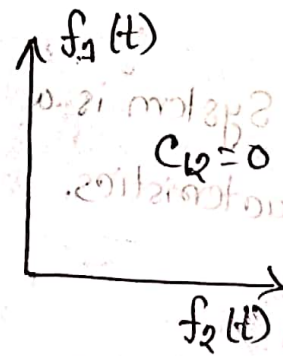 f₁(t)
C₁₂=0
f₂(t)